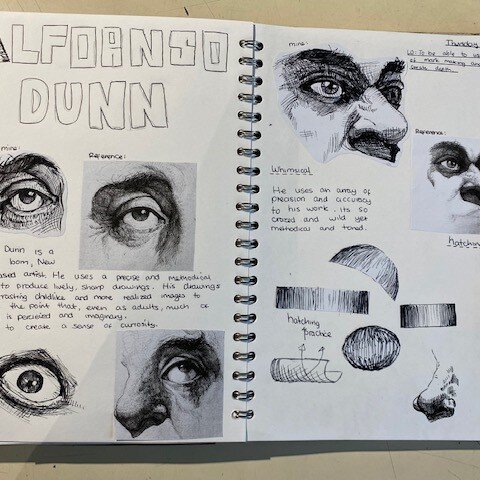 ALFOANSO
DUNN
mine:
Reference:
Dunn is a
born, New
based artist. He uses a precise and methodical
to produce lively, sharp drawings. His drawings
childlike and more realized images to
the point that, even as adults, much of
is perceived and imaginary.
to create a sense of curiosity.
mine:
Thursday
LO: To be able to use
of mark making and
create depth
Reference:
Whimsical
He uses an array of
precision and accuracy
to his work. Its so
crazed and wild yet
methodical and toned.
Hatching
hatching
practice